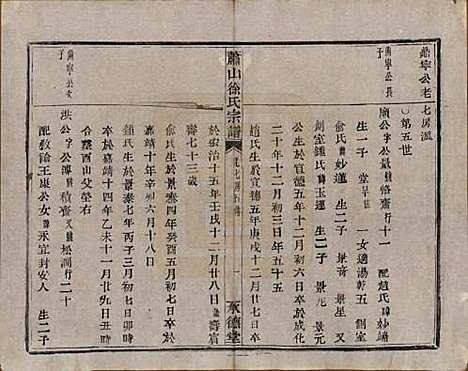 鼎寧公老七房派
○第五世
鼎寧公長子
廟公 字公量 號格齋 行十一 配趙氏 諱妙靖
生一子 堂 一女適湯乾五 側室
俞氏 諱妙蓮 生二子 景奇 景星 又
側室鍾氏 諱玉蓮 生二子 景元 景元
公生於宣德五年十二月初六日卒於成化
二十年十二月初三日年五十五
趙氏生於宣德五年庚戌十二月廿八日卒
蕭山徐氏宗譜
一
承德堂
於宏治十五年壬戌十二月廿八日 壽
壽七十三歲
俞氏生於景泰四年癸酉五月初七日卒於
嘉靖十年辛卯六月十八日
鍾氏生於景泰七年丙子三月初七日卯時
卒於嘉靖十四年乙未十一月廿九日年八十
合葬西山父塋右
鼎寧公次子
洪公 字公溥 號積齋 又號松澗 行二十
配教諭王康公女 諱永宜封安人 生二子